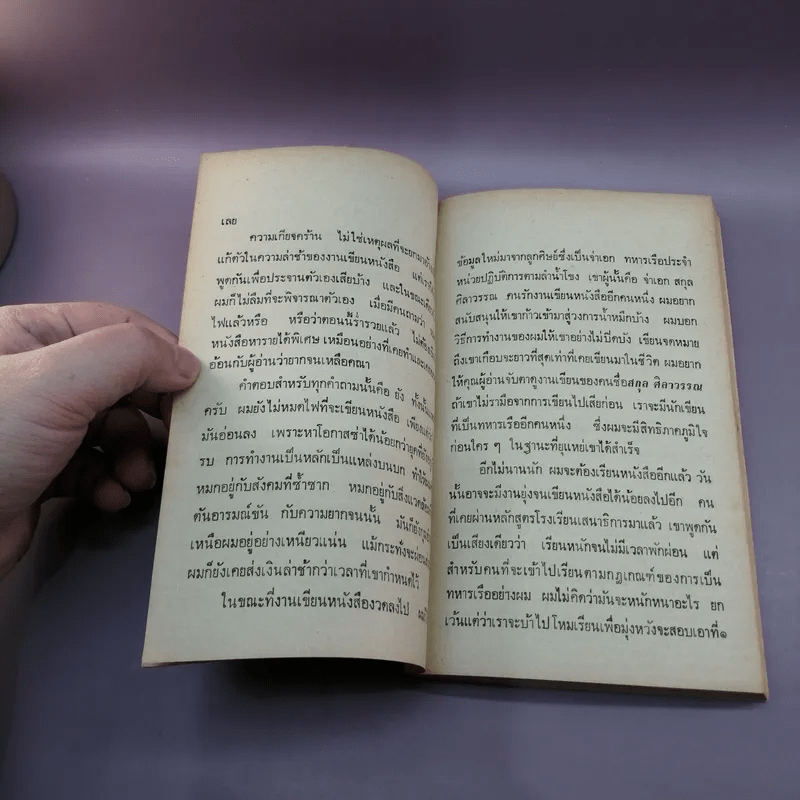 เลย
ความเกียจคร้าน ไม่ใช่เหตุผลที่จะยกมาอ้าง
แก้ตัวในความล่าช้าของงานเขียนหนังสือ
พูดกันเพื่อประจานตัวเองเสียบ้าง และในขณะ
ผมก็ไม่ลืมที่จะพิจารณาตัวเอง เมื่อมีคนถามว่า
ไฟแล้วหรือ หรือว่าตอนนี้ร่ำรวยแล้ว ไม่ต้อง
หนังสือหารายได้พิเศษ เหมือนอย่างที่เคยทำและเคย
อ้อนกับผู้อ่านว่ายากจนเหลือคณา
คำตอบสำหรับทุกคำถามนั้นคือ ยัง ทั้งนั้น
ครับ ผมยังไม่หมดไฟที่จะเขียนหนังสือ เพียงแต่ว่า
มันอ่อนลง เพราะหาโอกาสซ่าได้น้อยกว่ายุคที่ยัง
รบ การทำงานเป็นหลักเป็นแหล่งบนบก ทำให้ผม
หมกอยู่กับสังคมที่ซ้ำซาก หมกอยู่กับสิ่งแวดล้อม
ตันอารมณ์ขัน กับความยากจนนั้น มันก็ยังกุม
เหนือผมอยู่อย่างเหนียวแน่น แม้กระทั่งจะผ่อน
ผมก็ยังเคยส่งเงินล่าช้ากว่าเวลาที่เขากำหนดไว้
ในขณะที่งานเขียนหนังสืองวดลงไป
ข้อมูลใหม่มาจากลูกศิษย์ซึ่งเป็นจ่าเอก ทหารเรือประจำ
หน่วยปฏิบัติการตามลำน้ำโขง เขาผู้นั้นคือ จ่าเอก สกุล
ศิลาวรรณ คนรักงานเขียนหนังสืออีกคนหนึ่ง ผมอยาก
สนับสนุนให้เขาก้าวเข้ามาสู่วงการน้ำหมึกบ้าง ผมบอก
วิธีการทำงานของผมให้เขาอย่างไม่ปิดบัง เขียนจดหมาย
ถึงเขาเกือบจะยาวที่สุดเท่าที่เคยเขียนมาในชีวิต ผมอยาก
ให้คุณผู้อ่านจับตาดูงานเขียนของคนชื่อสกุล ศิลาวรรณ
ถ้าเขาไม่รามือจากการเขียนไปเสียก่อน เราจะมีนักเขียน
ที่เป็นทหารเรืออีกคนหนึ่ง ซึ่งผมจะมีสิทธิภาคภูมิใจ
ก่อนใคร ๆ ในฐานะที่ยุแหย่เขาได้สำเร็จ
อีกไม่นานนัก ผมจะต้องเรียนหนังสืออีกแล้ว วัน
นั้นอาจจะมีงานยุ่งจนเขียนหนังสือได้น้อยลงไปอีก คน
ที่เคยผ่านหลักสูตรโรงเรียนเสนาธิการมาแล้ว เขาพูดกัน
เป็นเสียงเดียวว่า เรียนหนักจนไม่มีเวลาพักผ่อน แต่
สำหรับคนที่จะเข้าไปเรียนตามกฎเกณฑ์ของการเป็น
ทหารเรืออย่างผม ผมไม่คิดว่ามันจะหนักหนาอะไร ยก
เว้นแต่ว่าเราจะบ้าไปโหมเรียนเพื่อมุ่งหวังจะสอบเอาที่๑